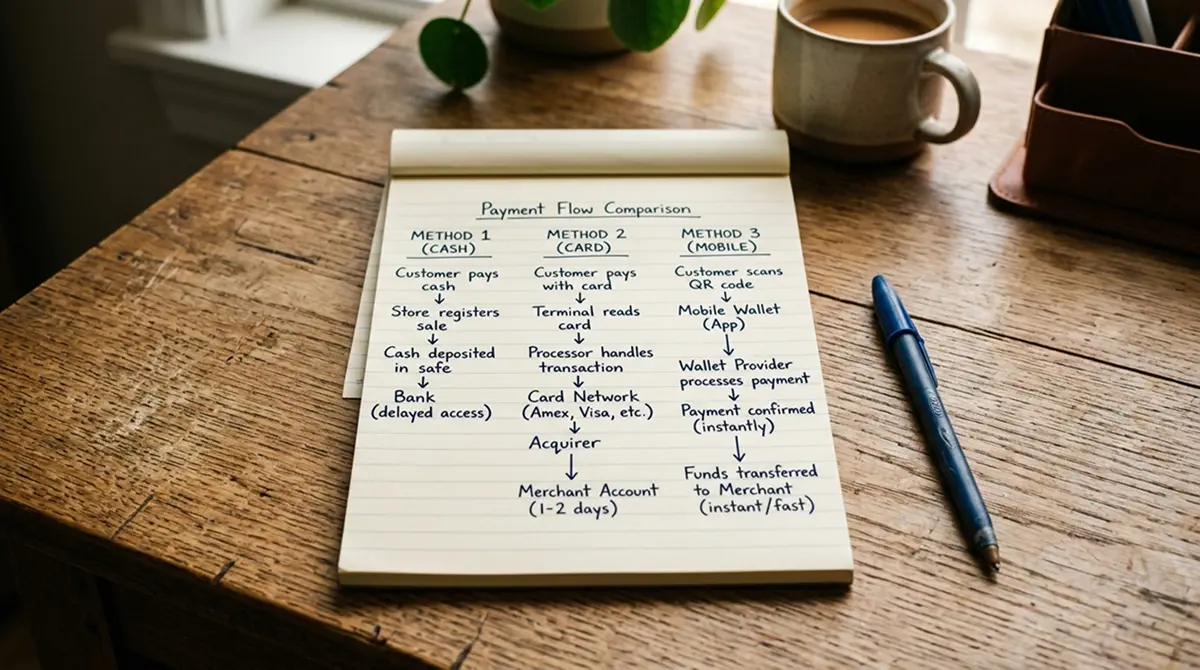 Payment Flow Comparison
METHOD 1
(CASH)
Customer pays
cash
↓
Store registers
sale
↓
Cash deposited
in safe
↓
Bank
(delayed access)
METHOD 2
(CARD)
Customer pays
with card
↓
Terminal reads
card
↓
Processor handles
transaction
↓
Card Network
(Amex, Visa, etc.)
↓
Acquirer
↓
Merchant Account
(1-2 days)
METHOD 3
(MOBILE)
Customer scans
QR code
↓
Mobile Wallet
(App)
↓
Wallet Provider
processes payment
↓
Payment confirmed
(instantly)
↓
Funds transferred
to Merchant
(instant/fast)